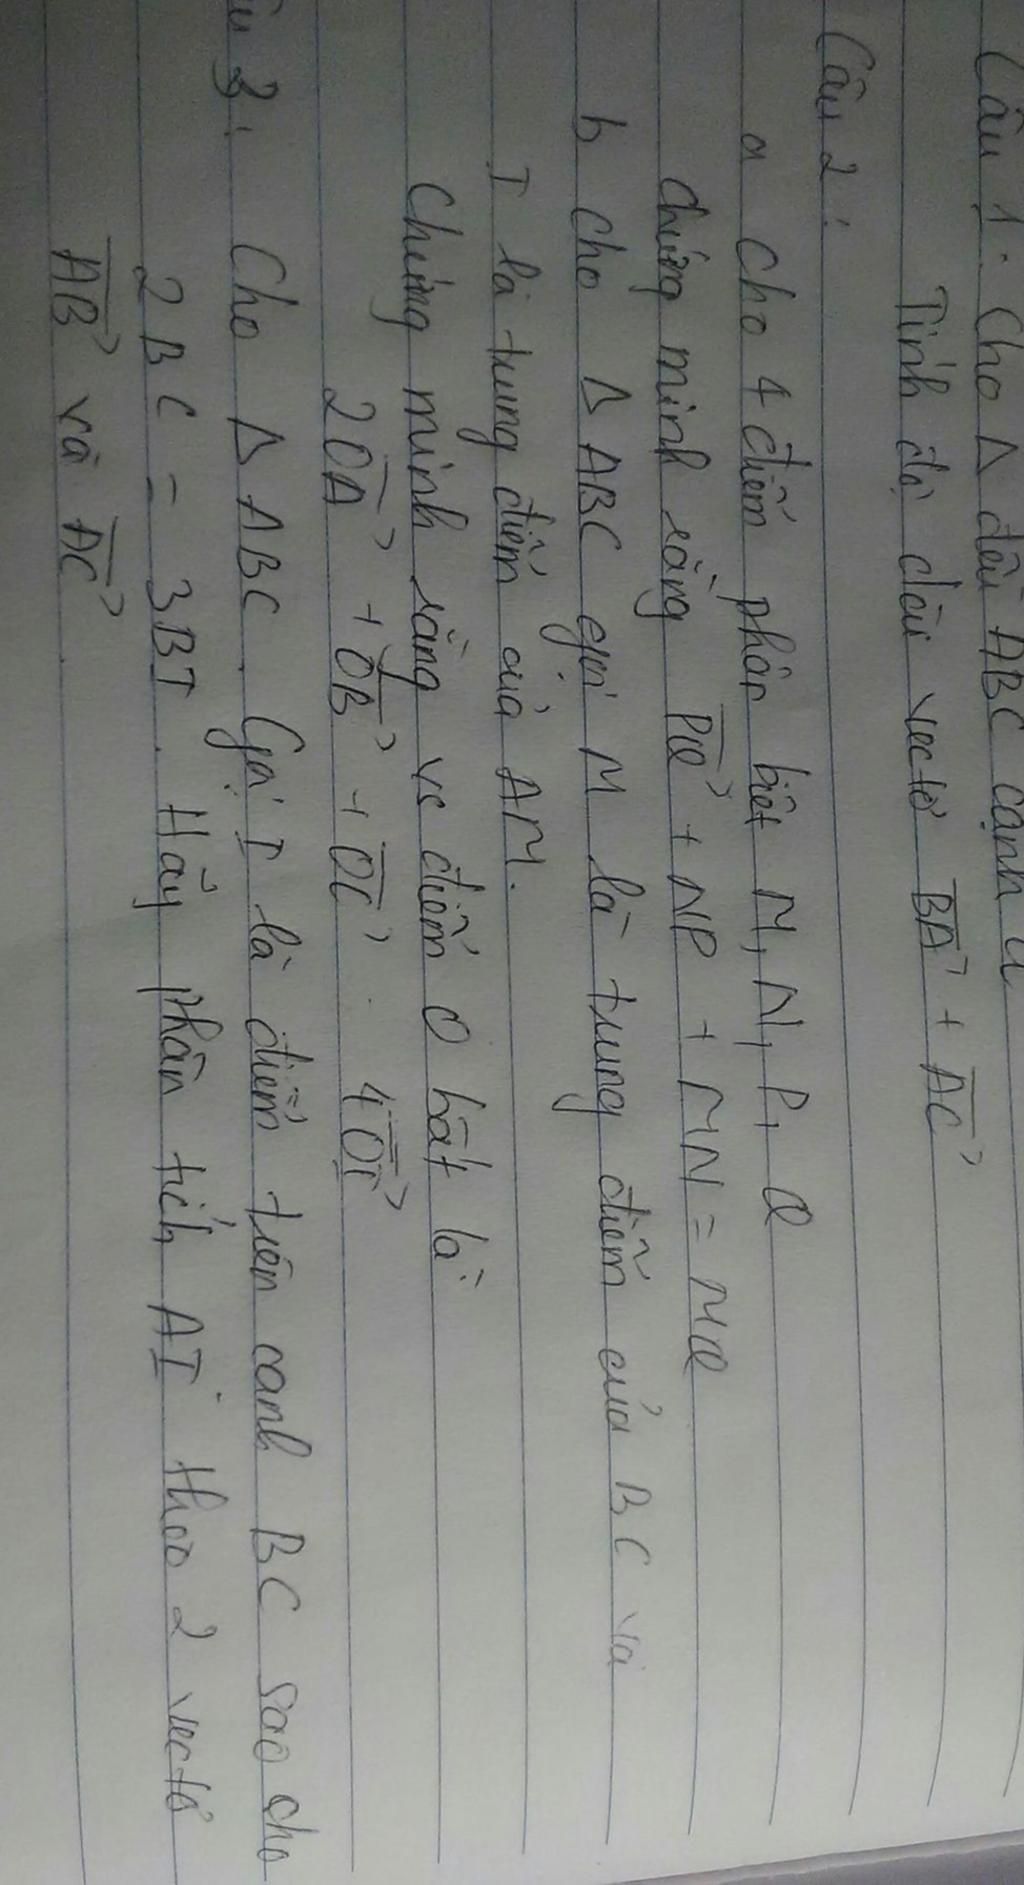 Câu 1: Cho Δ đều ABC cạnh a
Tính độ dài vectơ BA + AC
Câu 2:
a Cho 4 điểm phân biệt M, N, P, Q
chứng minh rằng PQ + NP + MN = MQ
b cho Δ ABC gọi M là trung điểm của BC và
I là trung điểm của AM.
Chứng minh rằng vs điểm O bất kì
2OA + OB + OC 4OI
3: Cho Δ ABC. Gọi I là điểm trên cạnh BC sao cho
2BC = 3BI. Hãy phân tích AI theo 2 vectơ
AB và AC